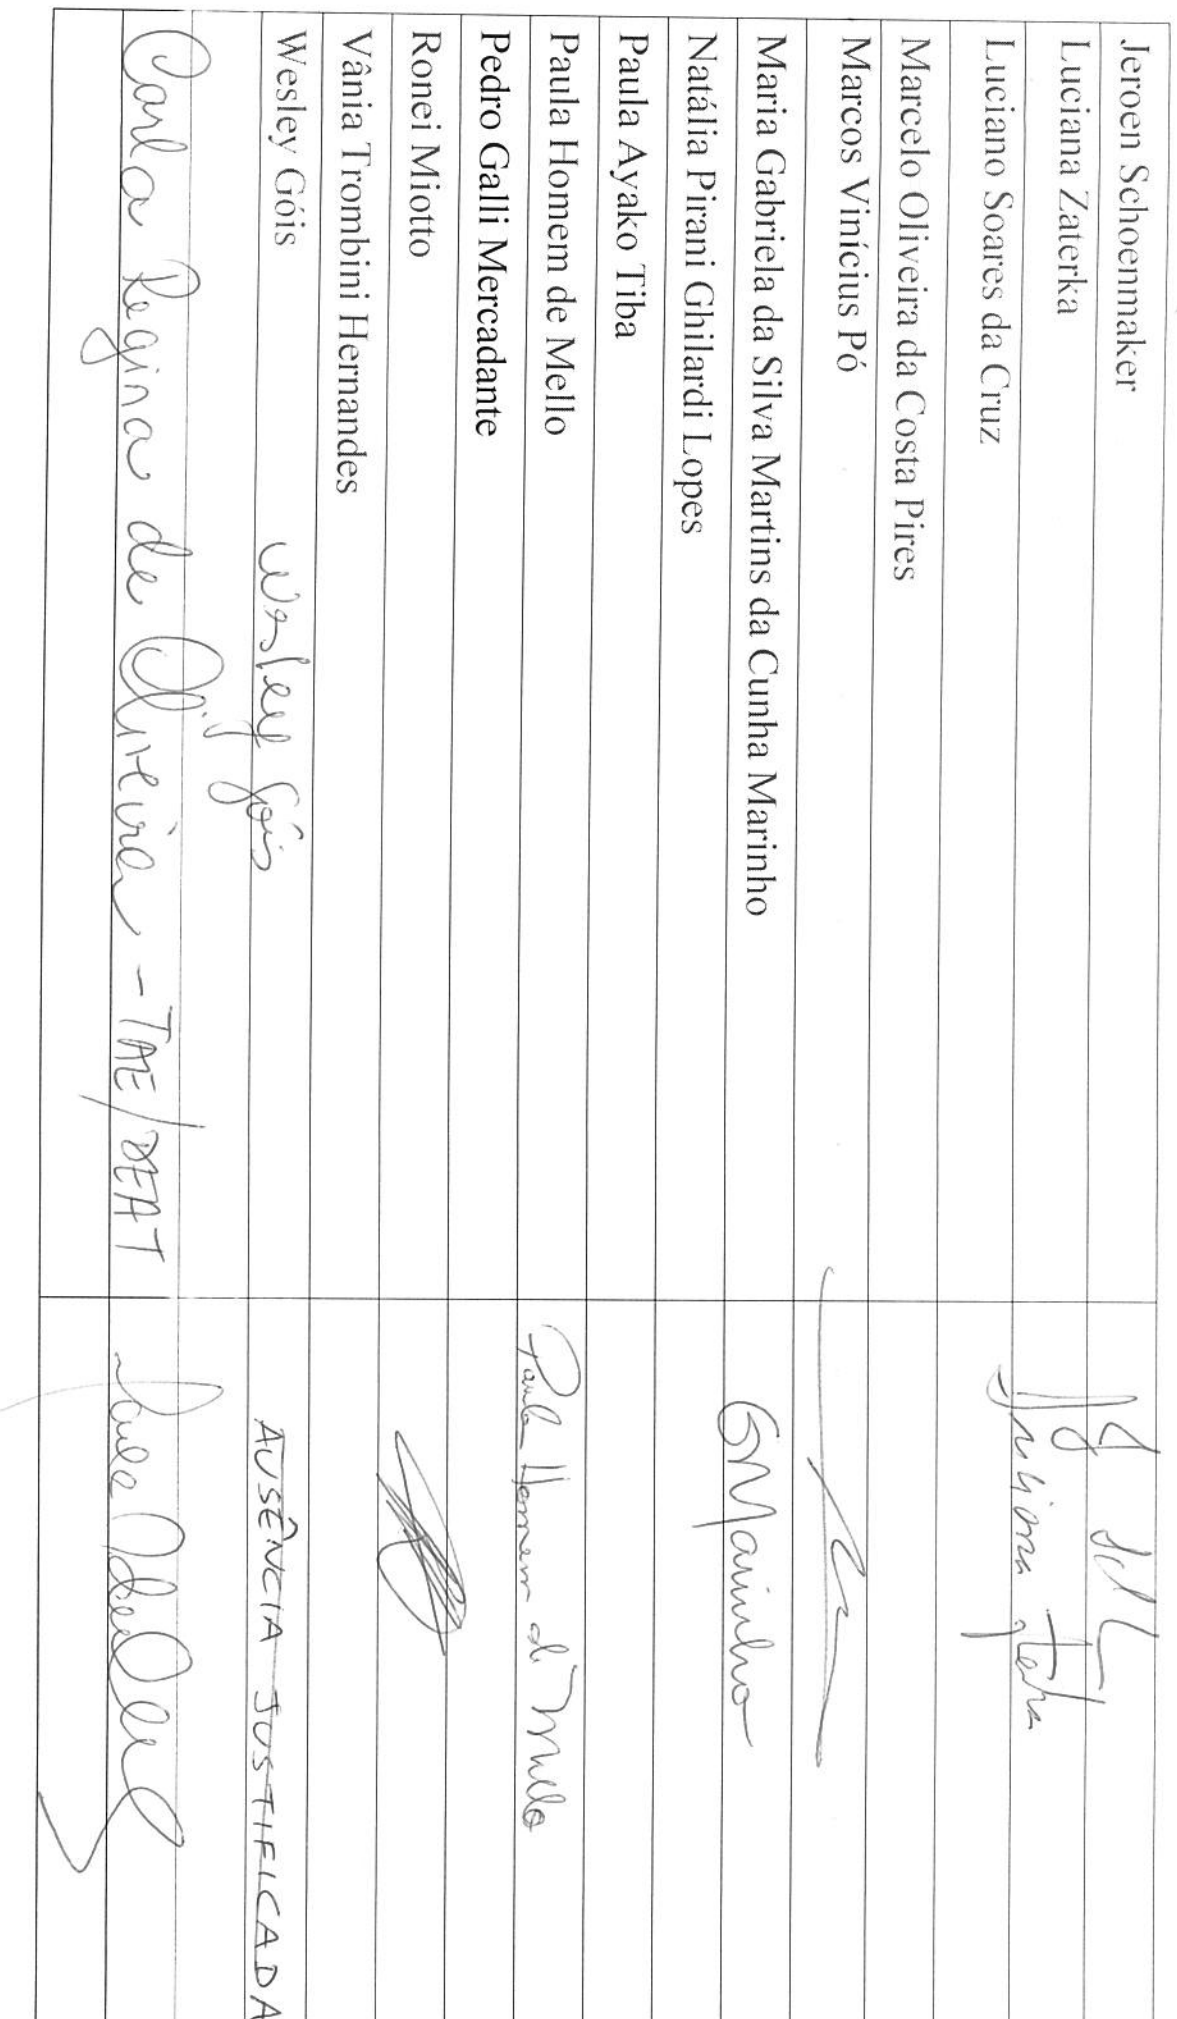 Jeroen Schoenmaker
Luciana Zaterka
Luciano Soares da Cruz
Marcelo Oliveira da Costa Pires
Marcos Vinícius Pó
Maria Gabriela da Silva Martins da Cunha Marinho GMarinho
Natália Pirani Ghilardi Lopes
Paula Ayako Tiba
Paula Homem de Mello Paula Homem de Mello
Pedro Galli Mercadante
Ronei Miotto
Vânia Trombini Hernandes
Wesley Góis Wesley Góis AUSÊNCIA JUSTIFICADA
Carla Regina de Oliveira - TAE/DEAT